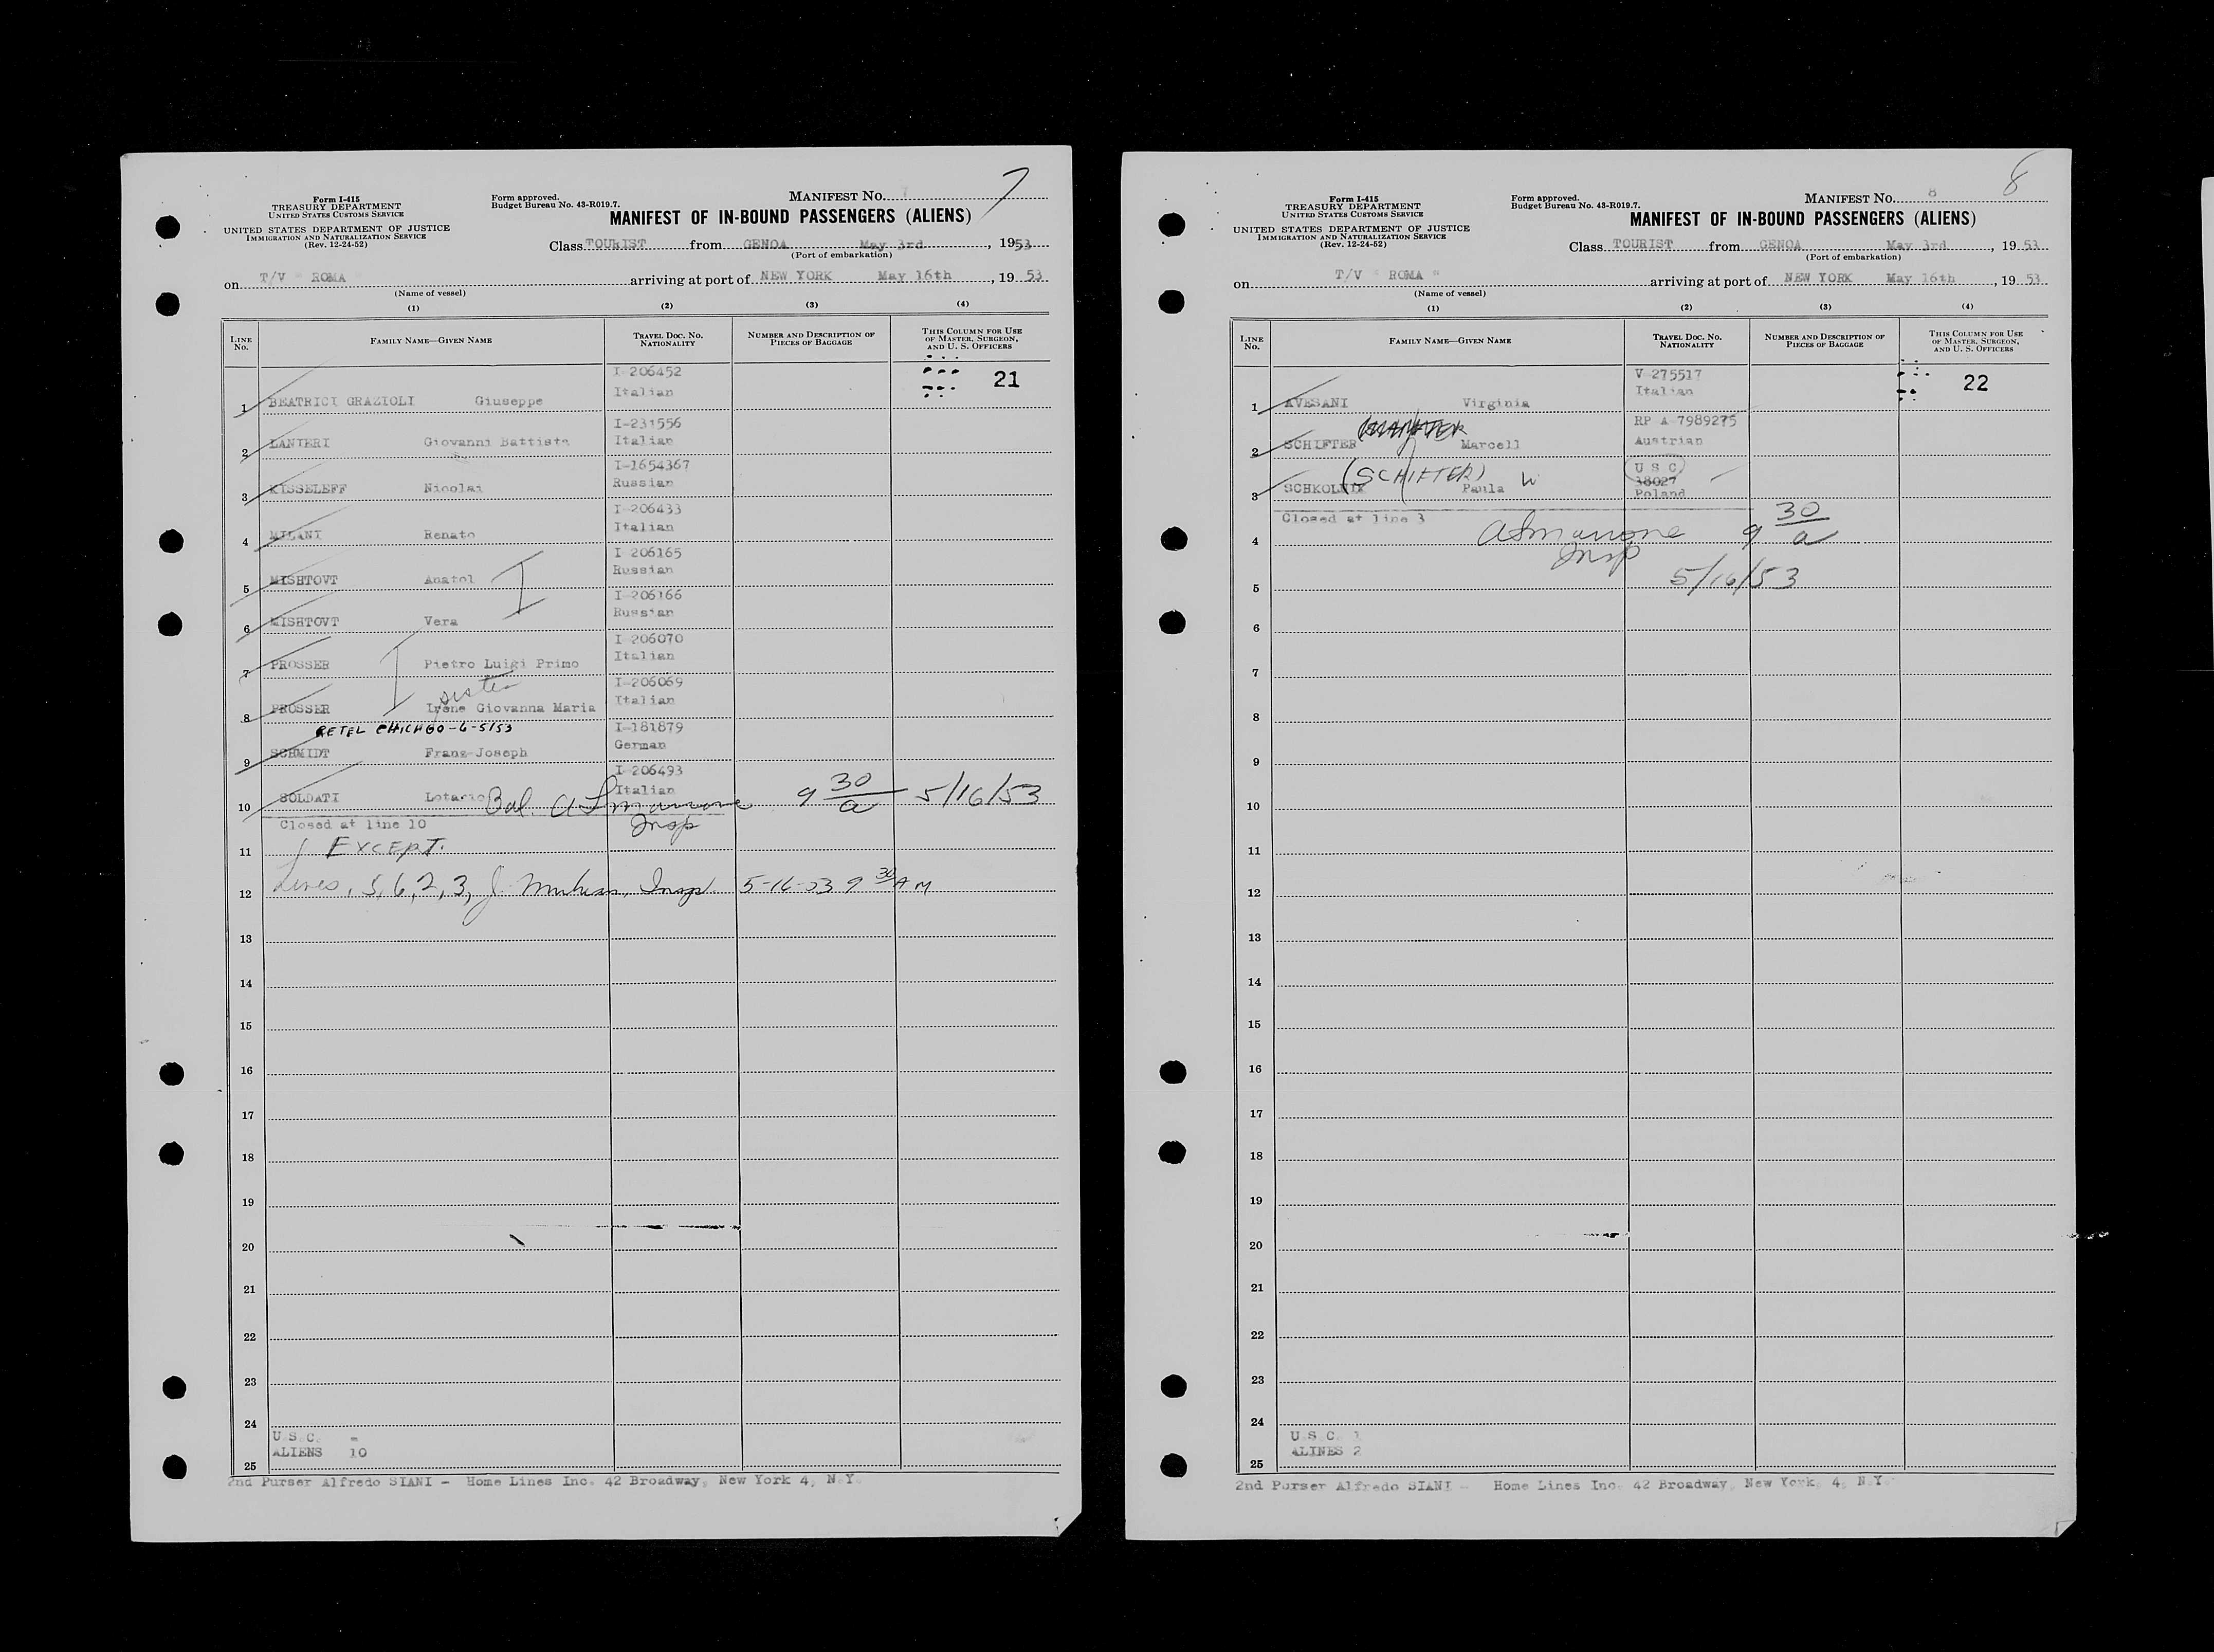 7
Form I-415
TREASURY DEPARTMENT
UNITED STATES CUSTOMS SERVICE
UNITED STATES DEPARTMENT OF JUSTICE
IMMIGRATION AND NATURALIZATION SERVICE
(Rev. 12-24-52)
Form approved.
Budget Bureau No. 43-R019.7.
MANIFEST No. 7
MANIFEST OF IN-BOUND PASSENGERS (ALIENS)
Class TOURIST from GENOA May 3rd, 1953
(Port of embarkation)
on T/V " ROMA " arriving at port of NEW YORK May 16th, 19 53
(Name of vessel)
(1) (2) (3) (4)
LINE No. FAMILY NAME—GIVEN NAME TRAVEL DOC. NO. NATIONALITY NUMBER AND DESCRIPTION OF PIECES OF BAGGAGE THIS COLUMN FOR USE OF MASTER, SURGEON, AND U. S. OFFICERS
21
1 BEATRICI GRAZIOLI Giuseppe I-206452 Italian
2 LANTERI Giovanni Battista I-231556 Italian
3 KISSELEFF Nicolai I-1654367 Russian
4 MILANI Renato I-206433 Italian
5 MISHTOVT Anatol I-206165 Russian
6 MISHTOVT Vera I-206166 Russian
7 PROSSER Pietro Luigi Primo I-206070 Italian
sister
8 PROSSER Irene Giovanna Maria I-206069 Italian
RETEL CHICAGO-6-5/53
9 SCHMIDT Franz-Joseph I-181879 German
10 SOLDATI Lotario I-206493 Italian
Bal. Insp 9 30/a 5/16/53
Closed at line 10
11 EXCEPT.
12 Lines, 5, 6, 2, 3, J. Insp 5-16-53 9 30 AM
13
14
15
16
17
18
19
20
21
22
23
24
U S C. =
ALIENS 10
25
2nd Purser Alfredo SIANI - Home Lines Inc. 42 Broadway, New York 4, N.Y.
8
Form I-415
TREASURY DEPARTMENT
UNITED STATES CUSTOMS SERVICE
UNITED STATES DEPARTMENT OF JUSTICE
IMMIGRATION AND NATURALIZATION SERVICE
(Rev. 12-24-52)
Form approved.
Budget Bureau No. 43-R019.7.
MANIFEST No. 8
MANIFEST OF IN-BOUND PASSENGERS (ALIENS)
Class TOURIST from GENOA May 3rd, 19 53
(Port of embarkation)
on T/V " ROMA " arriving at port of NEW YORK May 16th, 19 53
(Name of vessel)
(1) (2) (3) (4)
LINE No. FAMILY NAME—GIVEN NAME TRAVEL DOC. NO. NATIONALITY NUMBER AND DESCRIPTION OF PIECES OF BAGGAGE THIS COLUMN FOR USE OF MASTER, SURGEON, AND U. S. OFFICERS
22
1 AVESANI Virginia V-275517 Italian
2 SCHIFTER Marcell RP A 7989275 Austrian
(SCHIFTER) W
3 SCHKOLNIK Paula U S C 38027 Poland
Closed at line 3
4 Insp 9 30/a
5 5/16/53
6
7
8
9
10
11
12
13
14
15
16
17
18
19
20
21
22
23
24
U S C. 1
ALINES 2
25
2nd Purser Alfredo SIANI - Home Lines Inc. 42 Broadway, New York, 4, N.Y.